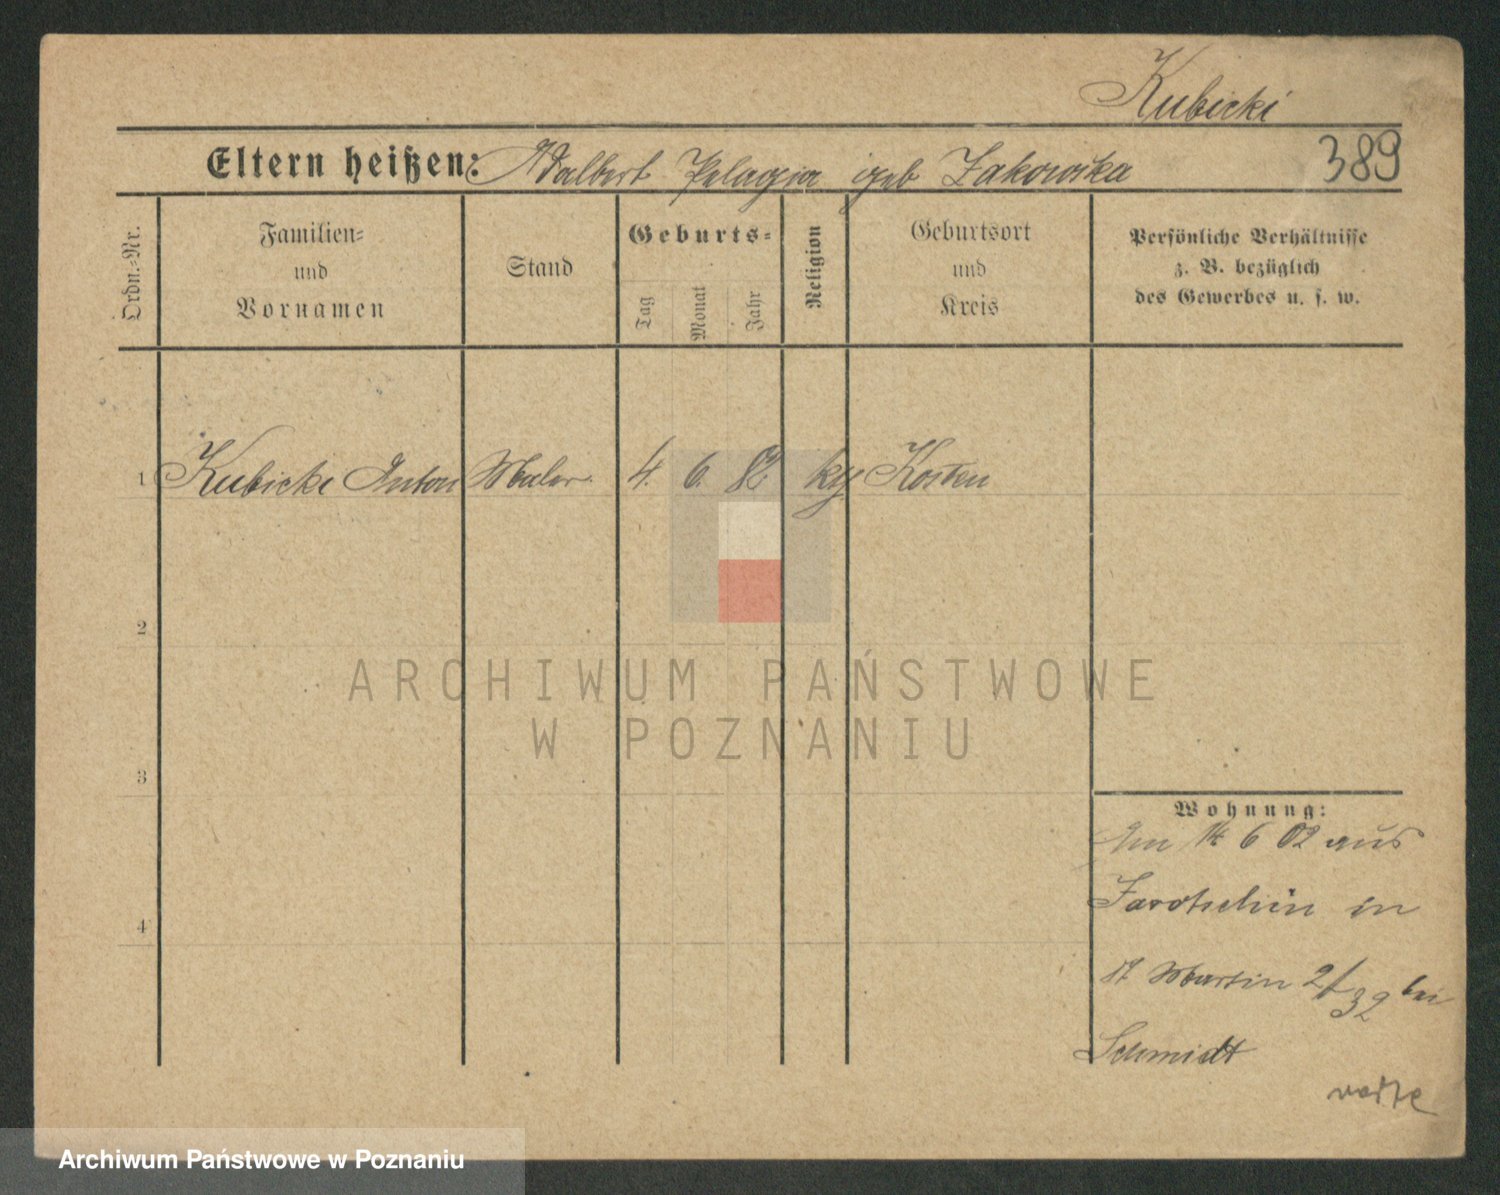 Kubicki
Eltern heißen: Adalbert Pelagia geb Zakowska
389
Ordn.-Nr.
Familien- und Vornamen
Stand
Geburts-
Tag
Monat
Jahr
Religion
Geburtsort und Kreis
Persönliche Verhältnisse
z. B. bezüglich
des Gewerbes u. s. w.
1 Kubicki Anton Maler. 4. 6. 82 Kosten
2
3
4
Wohnung:
Am 14 6 02 aus
Jarotschin in
St Martin 2/32 bei
Schmidt
ARCHIWUM PAŃSTWOWE
W POZNANIU
Archiwum Państwowe w Poznaniu